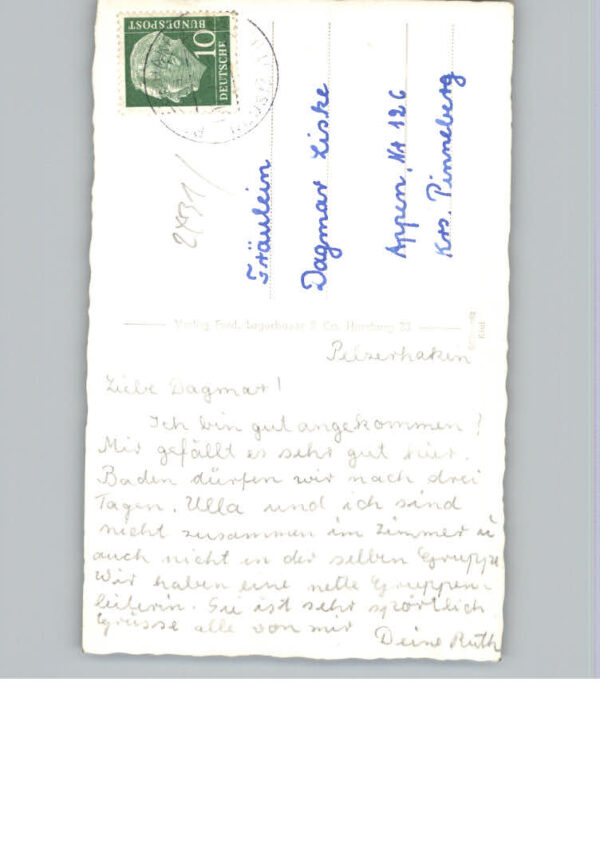 10
DEUTSCHE
BUNDESPOST
2431/
Fräulein
Dagmar Liske
Appen, NA 126
Krs. Pinneberg
Verlag Ferd. Lagerbauer & Co. Hamburg 23
Pelzerhaken
Liebe Dagmar!
Ich bin gut angekommen?
Mir gefällt es sehr gut hier.
Baden dürfen wir nach drei
Tagen. Ulla und ich sind
nicht zusammen im Zimmer u
auch nicht in der selben Gruppe
Wir haben eine nette Gruppen-
leiterin. Sie ist sehr sportlich
Grüsse alle von mir
Deine Ruth